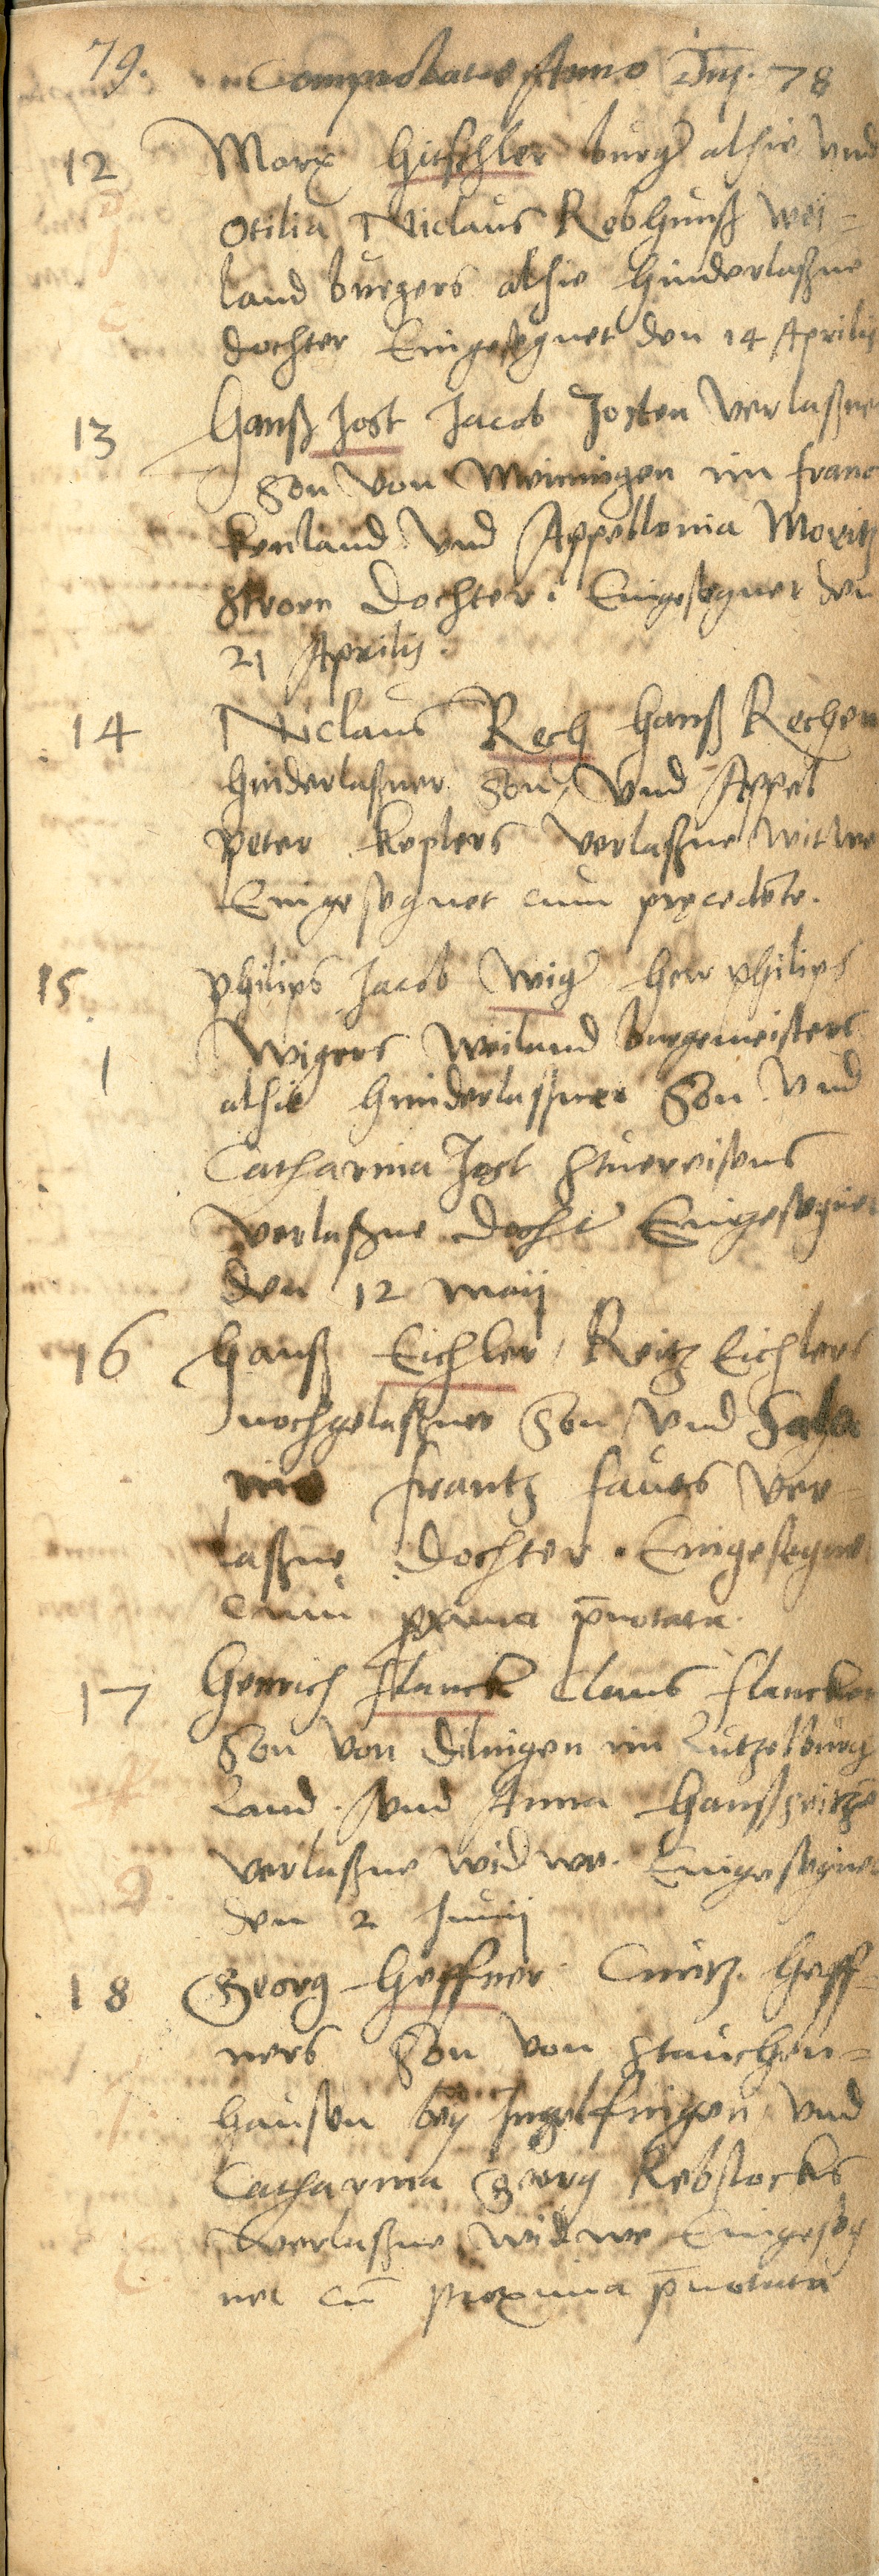 79.
Comprobatae Anno Dnj. 78
12 Marx Hitschler burger alhie und
Otilia Niclaus Rebhunß wei=
land burgers alhie hinderlaßne
dochter Eingesegnet den 14 Aprilis
13 Hanß Jost Jacob Josten verlaßner
Son von Meiningen im franc
kenland und Appellonia Moritz
Dochter. Eingesegnet den
21 Aprilis.
14 Niclaus Rech Hanß Rechen
hinderlaßner Son, und Appel
peter Keplers verlaßne witwe
Eingesegnet cum precedente.
15 Philips Jacob Wiger herr philips
1 Wigers Weiland burgemeisters
alhie hinderlaßner Son und
Catharina Jost
verlaßne docht Eingesegnet
den 12 Maij
16 Hanß Eichler, Reitz Eichlers
nochgelaßner Son und
frantz fauts ver=
laßne Dochter. Eingesegnet
cum proxima pnotata.
17 Henrich Flanck Claus flancken
Son von Dilingen im Lutzelburg
Land. Und Anna Hanß
verlaßne widwe. Eingesegnet
den 2 Junij
18 Georg Heffner Cuntz Heff=
ners Son von Stauchen=
hausen bey Ingelfingen und
Catharina Georg Rebstocks
verlaßne widwe Eingeseg
net cum proxima pnotata